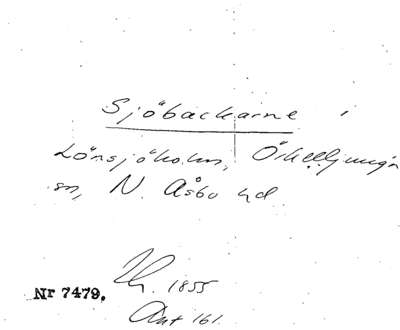 Sjöbackarne i
Lönsjöholm, Örkelljunga
sn, N. Åsbo hd.
1855
Nr 7479.
Ant 161.